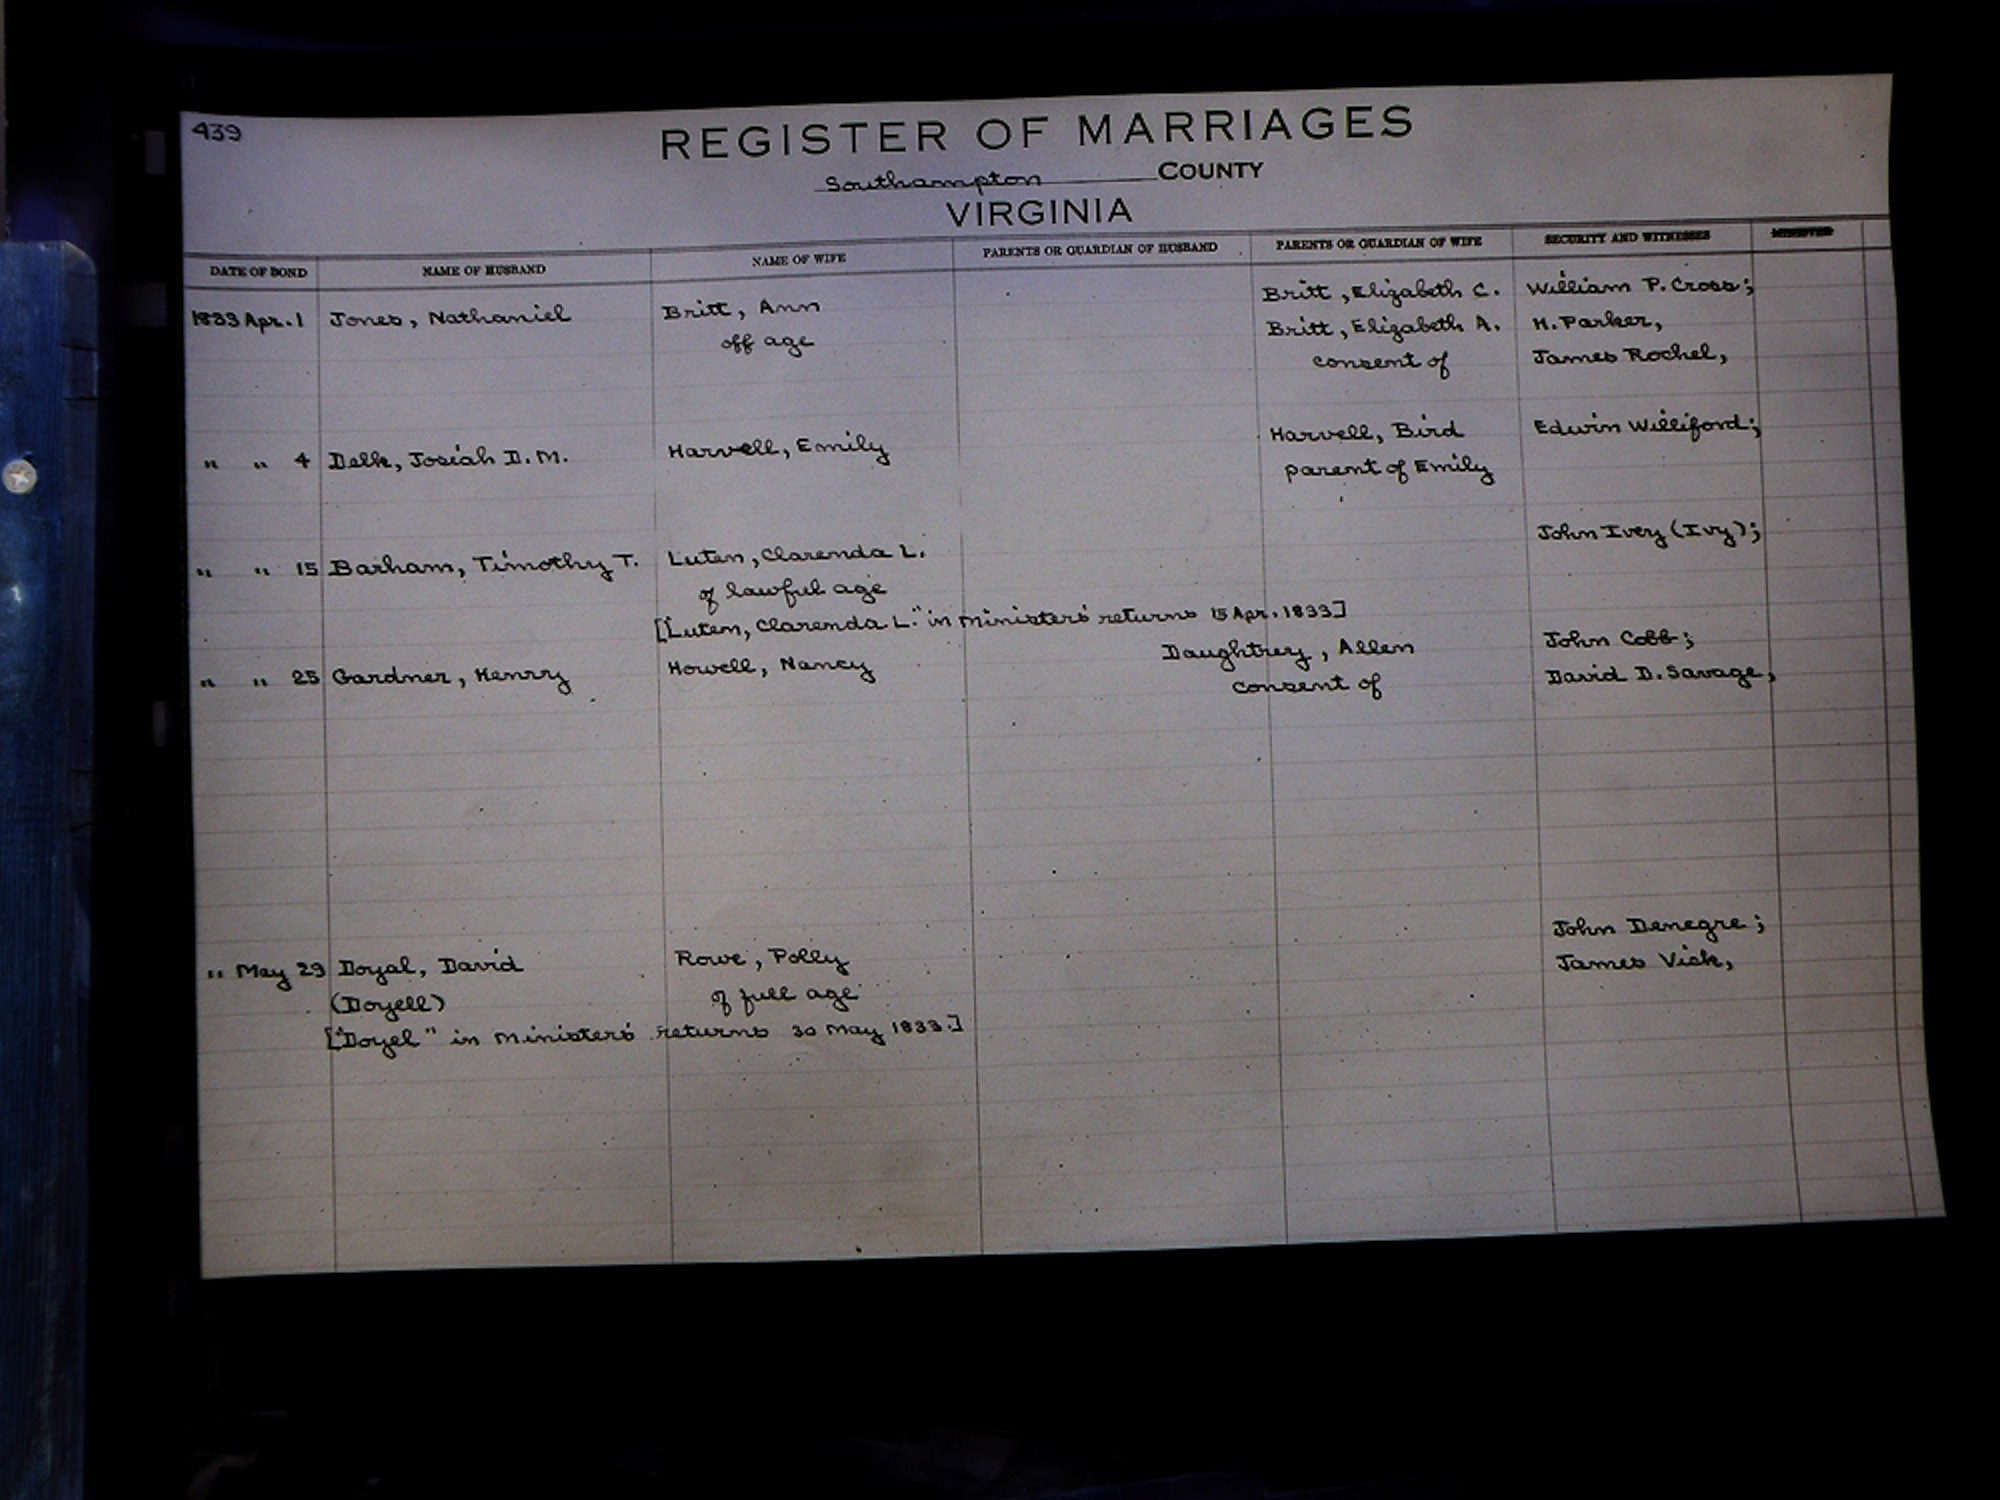 439
REGISTER OF MARRIAGES
Southampton COUNTY
VIRGINIA
DATE OF BOND NAME OF HUSBAND NAME OF WIFE PARENTS OR GUARDIAN OF HUSBAND PARENTS OR GUARDIAN OF WIFE SECURITY AND WITNESSES MINISTER
1833 Apr. 1 Jones, Nathaniel Britt, Ann Britt, Elizabeth C. William P. Cross;
off age Britt, Elizabeth A. H. Parker,
consent of James Rochel,
" " 4 Delk, Josiah D. M. Harvell, Emily Harvell, Bird Edwin Williford;
parent of Emily
" " 15 Barham, Timothy T. Luten, Clarenda L. John Ivery (Ivy);
of lawful age
["Lutem, Clarenda L." in Ministers' returns 15 Apr. 1833]
" " 25 Gardner, Henrry Howell, Nancy Daughtrey, Allen John Cobb;
consent of David D. Savage,
" May 29 Doyal, David Rowe, Polly John Denegre;
(Doyell) of full age James Vick,
["Doyel" in Ministers' returns 30 May 1833.]